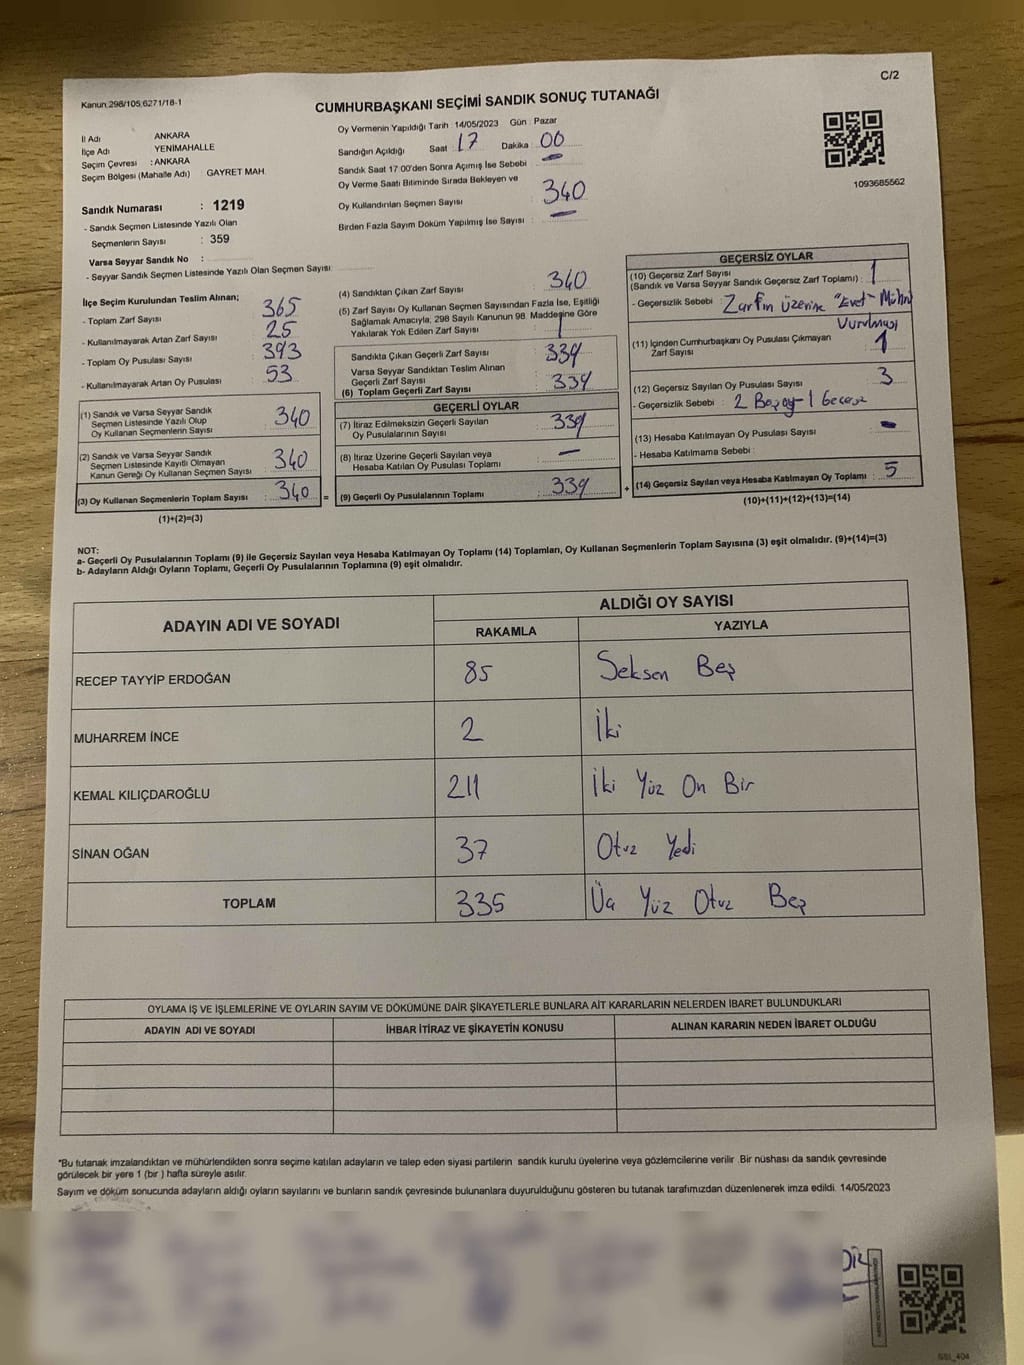 C/2
Kanun:298/105,6271/18-1
CUMHURBAŞKANI SEÇİMİ SANDIK SONUÇ TUTANAĞI
İl Adı ANKARA
İlçe Adı YENİMAHALLE
Seçim Çevresi : ANKARA
Seçim Bölgesi (Mahalle Adı) : GAYRET MAH.
Sandık Numarası : 1219
- Sandık Seçmen Listesinde Yazılı Olan
Seçmenlerin Sayısı : 359
Varsa Seyyar Sandık No :
- Seyyar Sandık Seçmen Listesinde Yazılı Olan Seçmen Sayısı:
Oy Vermenin Yapıldığı Tarih : 14/05/2023 Gün : Pazar
Sandığın Açıldığı Saat : 17 Dakika : 00
Sandık Saat 17:00'den Sonra Açımış İse Sebebi : -
Oy Verme Saati Bitiminde Sırada Bekleyen ve
Oy Kullandırılan Seçmen Sayısı : 340
Birden Fazla Sayım Döküm Yapılmış İse Sayısı : -
1093685562
İlçe Seçim Kurulundan Teslim Alınan;
- Toplam Zarf Sayısı 365
- Kullanılmayarak Artan Zarf Sayısı 25
- Toplam Oy Pusulası Sayısı 393
- Kullanılmayarak Artan Oy Pusulası 53
(1) Sandık ve Varsa Seyyar Sandık
Seçmen Listesinde Yazılı Olup
Oy Kullanan Seçmenlerin Sayısı : 340
(2) Sandık ve Varsa Seyyar Sandık
Seçmen Listesinde Kayıtlı Olmayan
Kanun Gereği Oy Kullanan Seçmen Sayısı : 340
(3) Oy Kullanan Seçmenlerin Toplam Sayısı : 340 =
(1)+(2)=(3)
(4) Sandıktan Çıkan Zarf Sayısı : 340
(5) Zarf Sayısı Oy Kullanan Seçmen Sayısından Fazla İse, Eşitliği
Sağlamak Amacıyla, 298 Sayılı Kanunun 98. Maddesine Göre
Yakılarak Yok Edilen Zarf Sayısı : 1
Sandıkta Çıkan Geçerli Zarf Sayısı : 339
Varsa Seyyar Sandıktan Teslim Alınan
Geçerli Zarf Sayısı
(6) Toplam Geçerli Zarf Sayısı : 339
GEÇERLİ OYLAR
(7) İtiraz Edilmeksizin Geçerli Sayılan
Oy Pusulalarının Sayısı : 339
(8) İtiraz Üzerine Geçerli Sayılan veya
Hesaba Katılan Oy Pusulası Toplamı : -
(9) Geçerli Oy Pusulalarının Toplamı : 339 +
GEÇERSİZ OYLAR
(10) Geçersiz Zarf Sayısı
(Sandık ve Varsa Seyyar Sandık Geçersiz Zarf Toplamı) : 1
- Geçersizlik Sebebi : Zarfın üzerine "Evet-Mührü
Vurulması
(11) İçinden Cumhurbaşkanı Oy Pusulası Çıkmayan
Zarf Sayısı 1
(12) Geçersiz Sayılan Oy Pusulası Sayısı : 3
- Geçersizlik Sebebi : 2
(13) Hesaba Katılmayan Oy Pusulası Sayısı : -
- Hesaba Katılmama Sebebi :
(14) Geçersiz Sayılan veya Hesaba Katılmayan Oy Toplamı : 5
(10)+(11)+(12)+(13)=(14)
NOT:
a- Geçerli Oy Pusulalarının Toplamı (9) ile Geçersiz Sayılan veya Hesaba Katılmayan Oy Toplamı (14) Toplamları, Oy Kullanan Seçmenlerin Toplam Sayısına (3) eşit olmalıdır. (9)+(14)=(3)
b- Adayların Aldığı Oyların Toplamı, Geçerli Oy Pusulalarının Toplamına (9) eşit olmalıdır.
ADAYIN ADI VE SOYADI ALDIĞI OY SAYISI
RAKAMLA YAZIYLA
RECEP TAYYİP ERDOĞAN 85 Seksen Beş
MUHARREM İNCE 2 İki
KEMAL KILIÇDAROĞLU 211 İki Yüz On Bir
SİNAN OĞAN 37 Otuz Yedi
TOPLAM 335 Üç Yüz Otuz Beş
OYLAMA İŞ VE İŞLEMLERİNE VE OYLARIN SAYIM VE DÖKÜMÜNE DAİR ŞİKAYETLERLE BUNLARA AİT KARARLARIN NELERDEN İBARET BULUNDUKLARI
ADAYIN ADI VE SOYADI İHBAR İTİRAZ VE ŞİKAYETİN KONUSU ALINAN KARARIN NEDEN İBARET OLDUĞU
*Bu tutanak imzalandıktan ve mühürlendikten sonra seçime katılan adayların ve talep eden siyasi partilerin sandık kurulu üyelerine veya gözlemcilerine verilir .Bir nüshası da sandık çevresinde
görülecek bir yere 1 (bir ) hafta süreyle asılır.
Sayım ve döküm sonucunda adayların aldığı oyların sayılarını ve bunların sandık çevresinde bulunanlara duyurulduğunu gösteren bu tutanak tarafımızdan düzenlenerek imza edildi. 14/05/2023